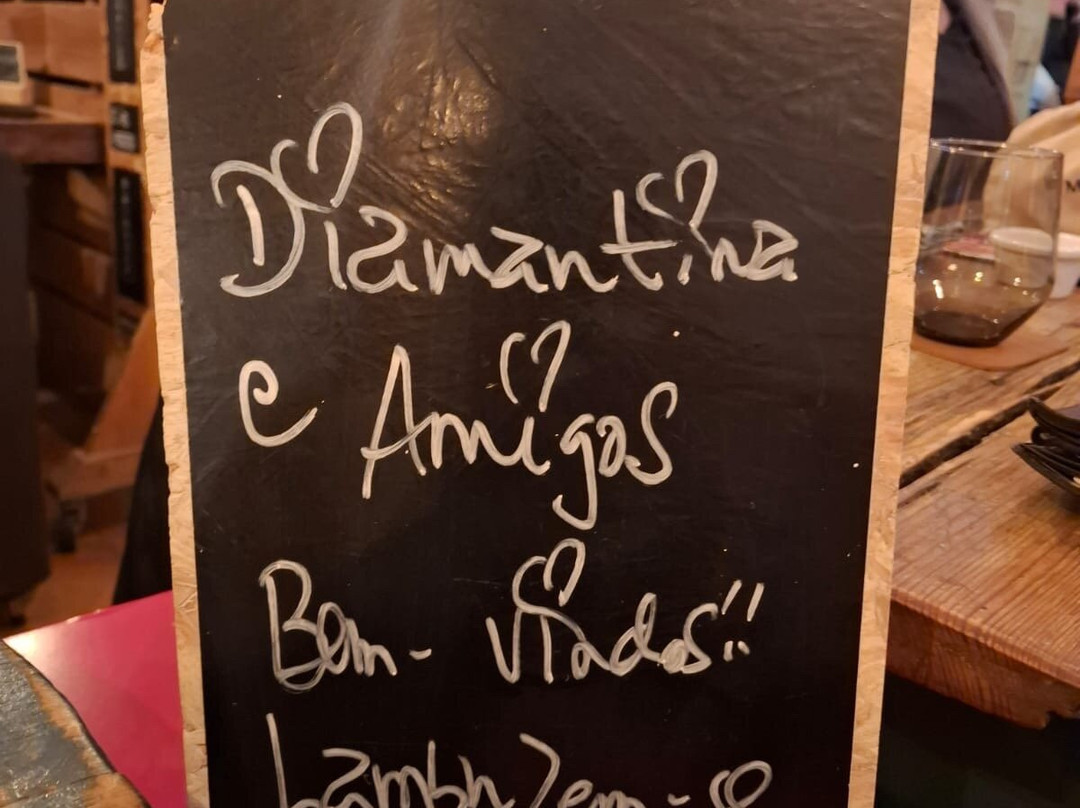 Diamantina
e Amigos
Bem-vindos!!
Lambuzem-se